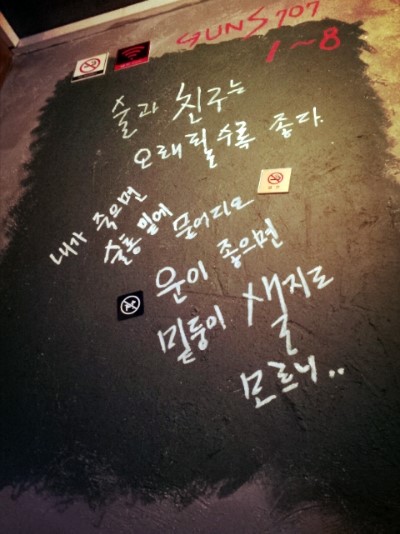 GUNS707
1~8
술과 친구는
오래될수록 좋다.
내가 죽으면
술통 밑에 묻어다오
운이 좋으면
밑둥이 샐지도
모르니..